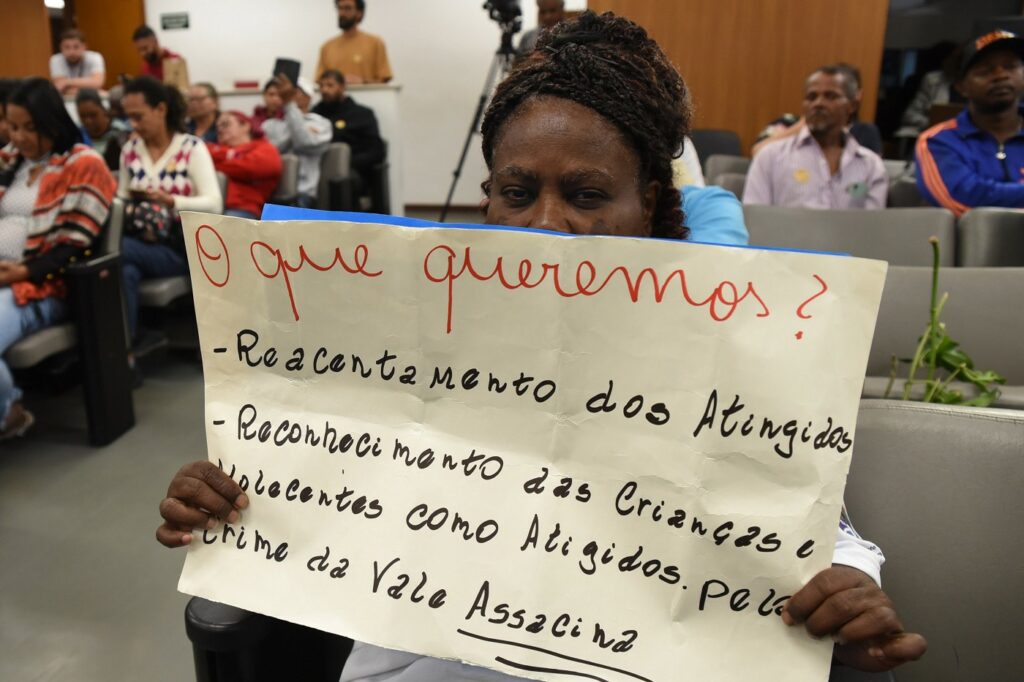 O que queremos?
- Reacentamento dos Atingidos
- Reconhecimento das Crianças e
dolecentes como Atigidos. pelo
crime da Vale Assacina